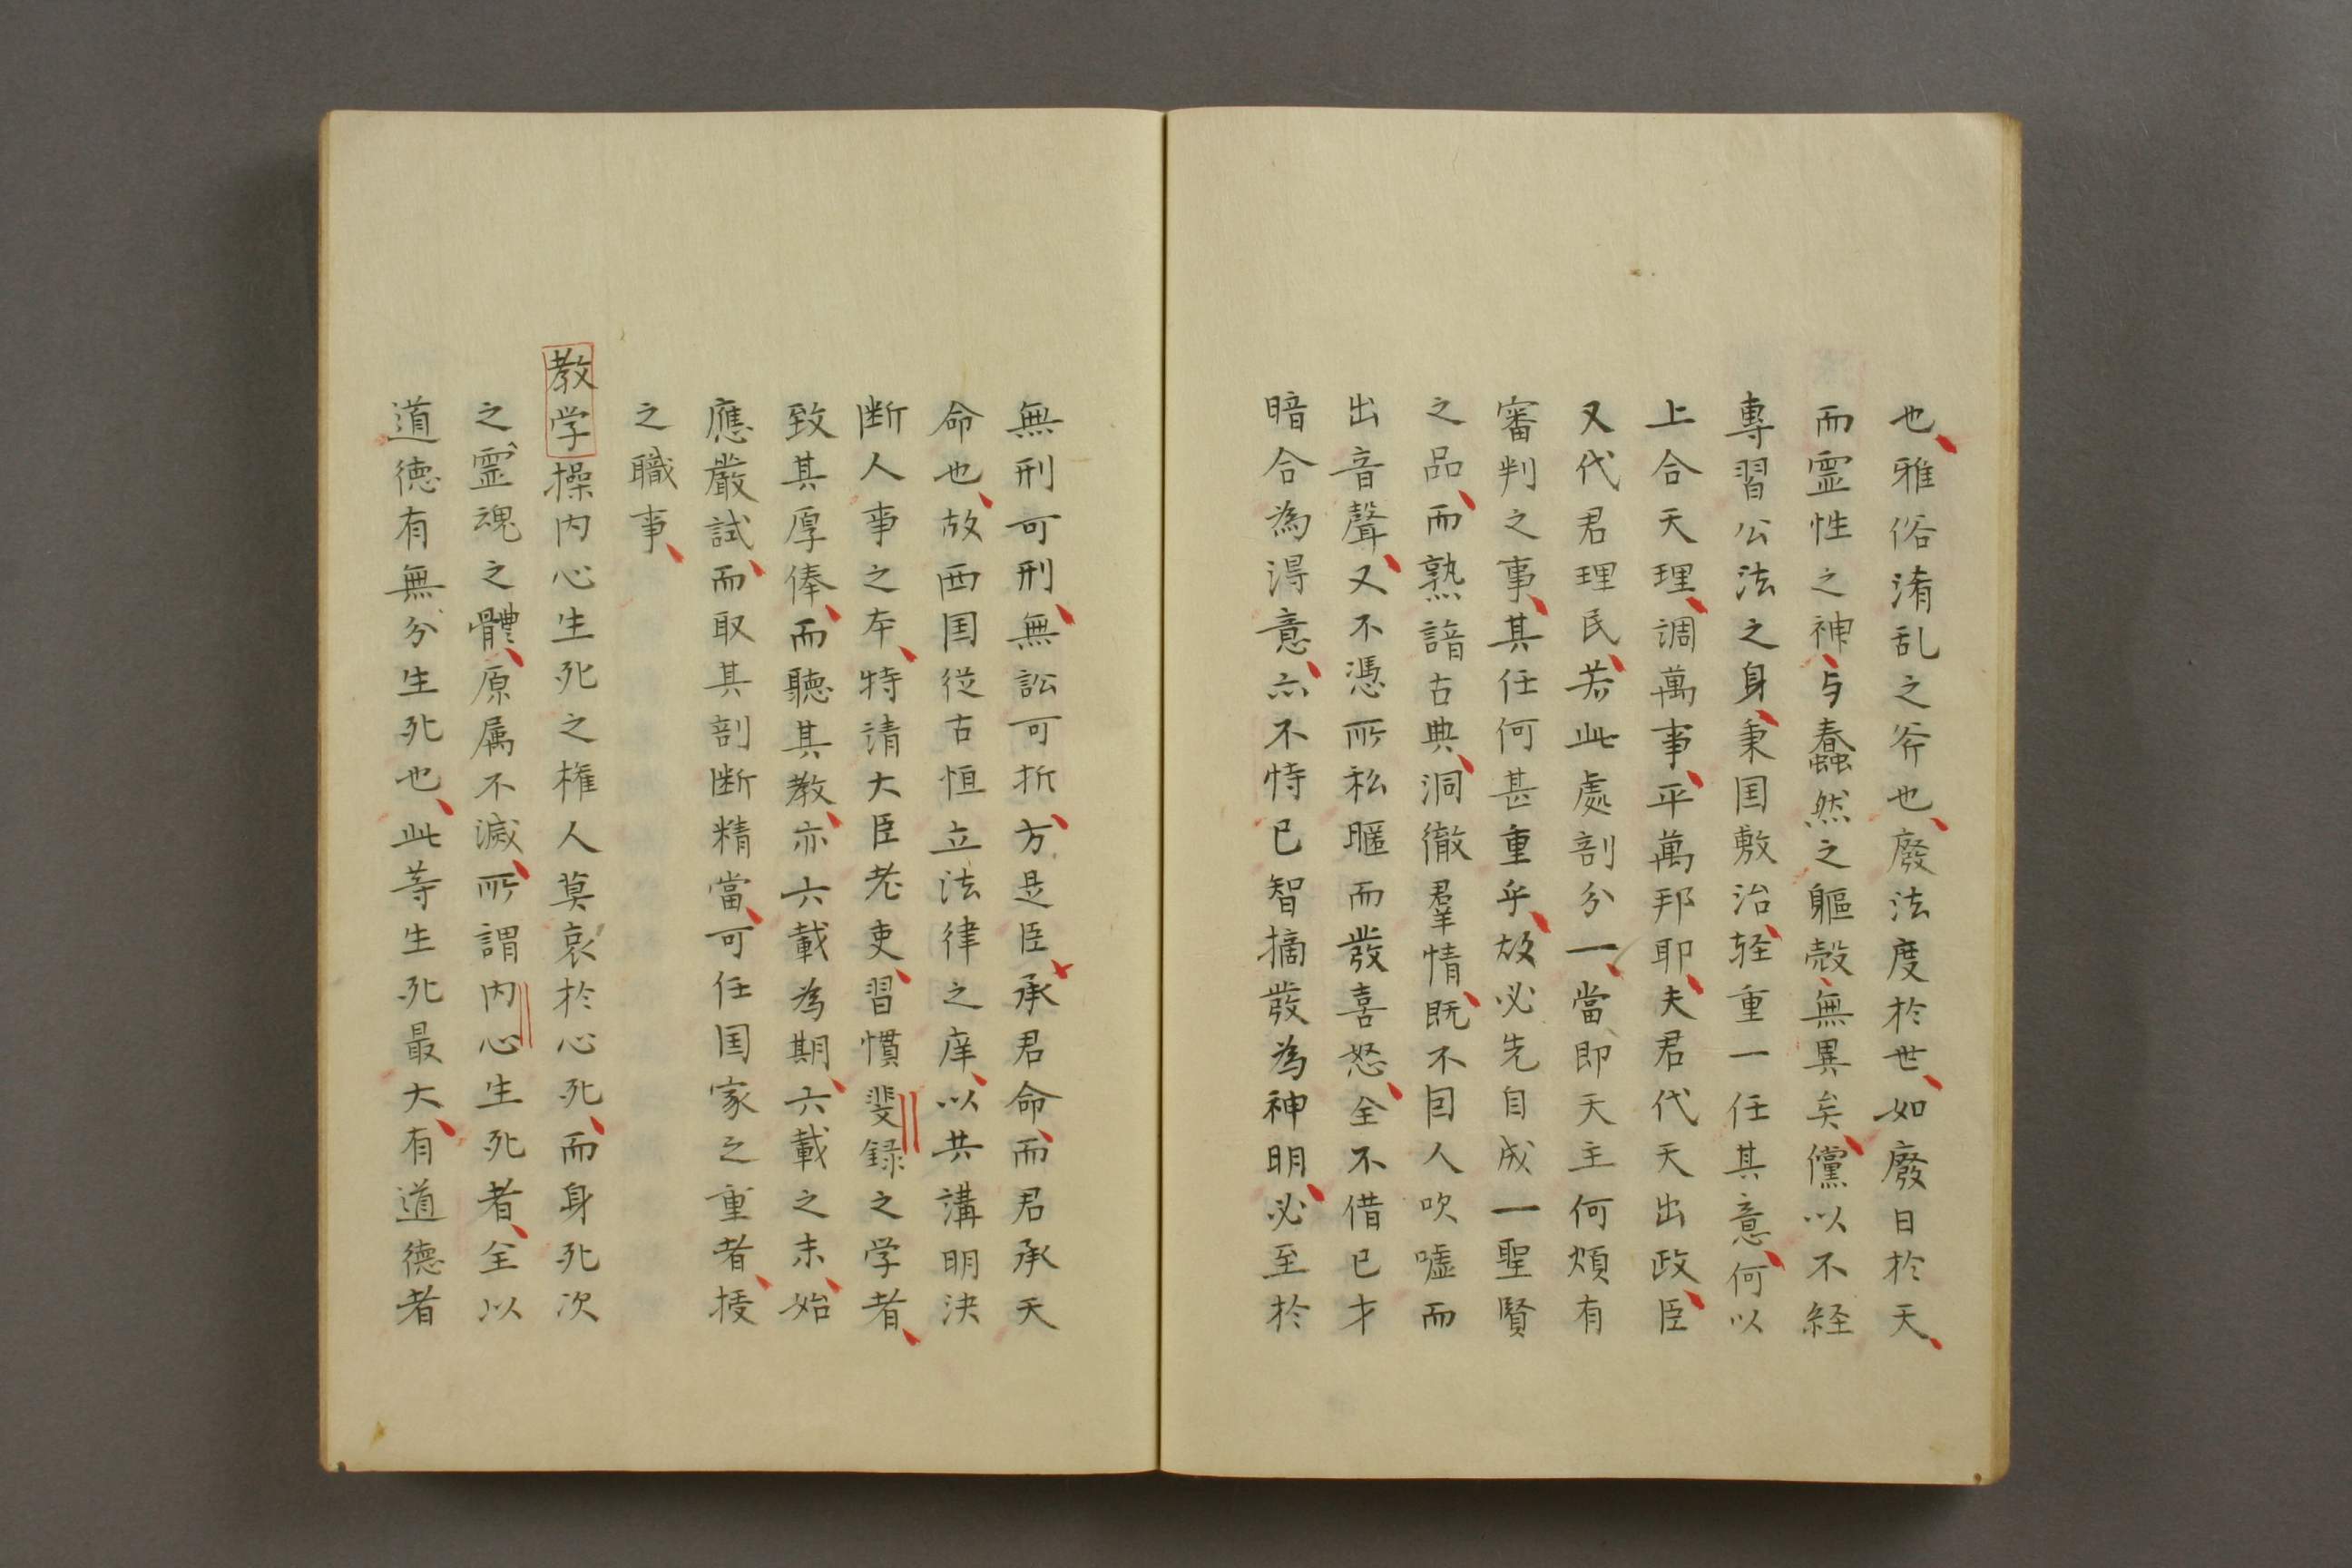 也、雅俗淆乱之斧也、廢法度於世、如廢日於天、
而霊性之神、与蠢然之軀殻、無異矣、儻以不経
專習公法之身、秉国敷治、轻重一任其意、何以
上合天理、調萬事、平萬邦耶、夫君代天出政、臣
又代君理民、若此處剖分一、當即天主何煩有
審判之事、其任何甚重乎、故必先自成一聖賢
之品、而熟諳古典、洞徹羣情、既不因人吹噓而
出音聲、又不憑所私暱而發喜怒、全不借已才
暗合為淂意、亦不恃已智摘發為神明、必至於
無刑可刑、無訟可折、方是臣、承君命、而君承天
命也、故西国従古恒立法律之庠、以共講明決
断人事之本、特請大臣老吏、習慣斐録之学者、
致其厚俸、而聽其教、亦六載為期、六載之末、始
應嚴試、而取其剖断精當、可任国家之重者、授
之職事、
教学操内心生死之権人莫哀於心死、而身死次
之霊魂之體、原属不滅、所謂内心生死者、全以
道徳有無分生死也、此等生死最大、有道德者